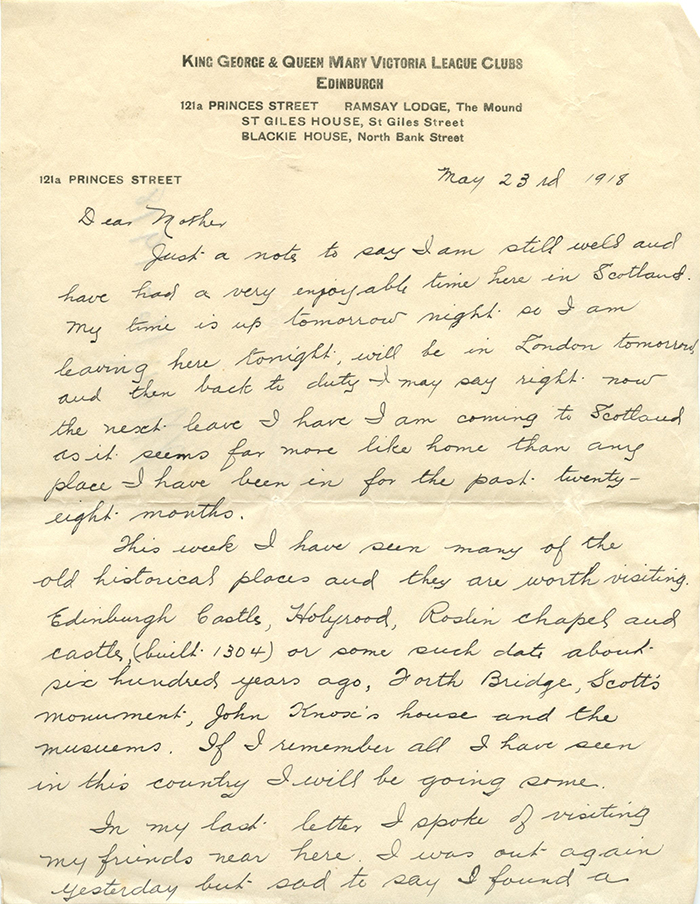 KING GEORGE & QUEEN MARY VICTORIA LEAGUE CLUBS
EDINBURGH
121a PRINCES STREET RAMSAY LODGE, The Mound
ST GILES HOUSE, St Giles Street
BLACKIE HOUSE, North Bank Street
121a PRINCES STREET
May 23rd 1918
Dear Mother
Just a note to say I am still well and
have had a very enjoyable time here in Scotland.
My time is up tomorrow night so I am
leaving here tonight, will be in London tomorrow
and then back to duty I may say right now
the next leave I have I am coming to Scotland
as it seems far more like home than any
place I have been in for the past twenty-
eight months.
This week I have seen many of the
old historical places and they are worth visiting.
Edinburgh Castle, Holyrood, Roslin chapel and
castle, (built 1304) or some such date about
six hundred years ago, Forth Bridge, Scott's
monument, John Knox's house and the
musuems. If I remember all I have seen
in this country I will be going some.
In my last letter I spoke of visiting
my friends near here. I was out again
yesterday but sad to say I found a